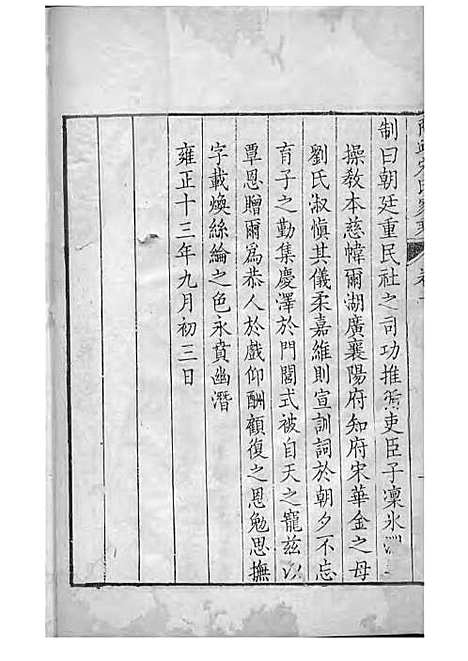 制曰朝廷重民社之司功推循吏臣子凜氷淵之
操教本慈幃爾湖廣襄陽府知府宋華金之母
劉氏淑慎其儀柔嘉維則宣訓詞於朝夕不忘
育子之勤集慶澤於門閭式被自天之寵茲以
覃恩贈爾為恭人於戲仰酬顧復之恩勉思撫
字載煥絲綸之色永賁幽潛
雍正十三年九月初三日